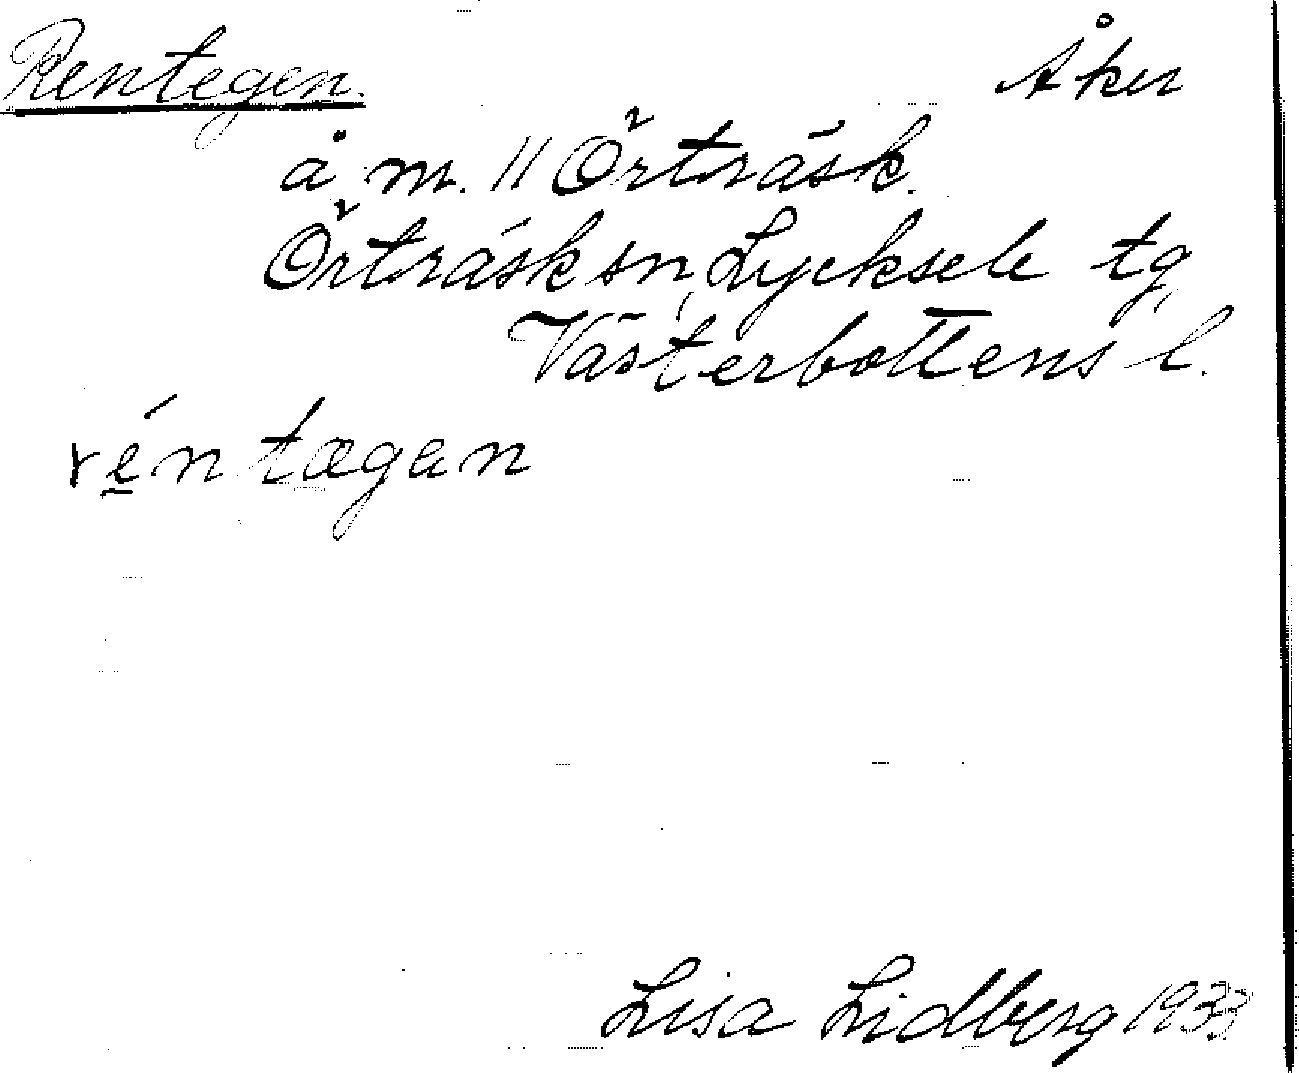 Rentegen. Åker
å m. 11 Örträsk.
Örträsk sn, Lycksele tg,
Västerbottens l.
réntægan
Lisa Lidberg 1933